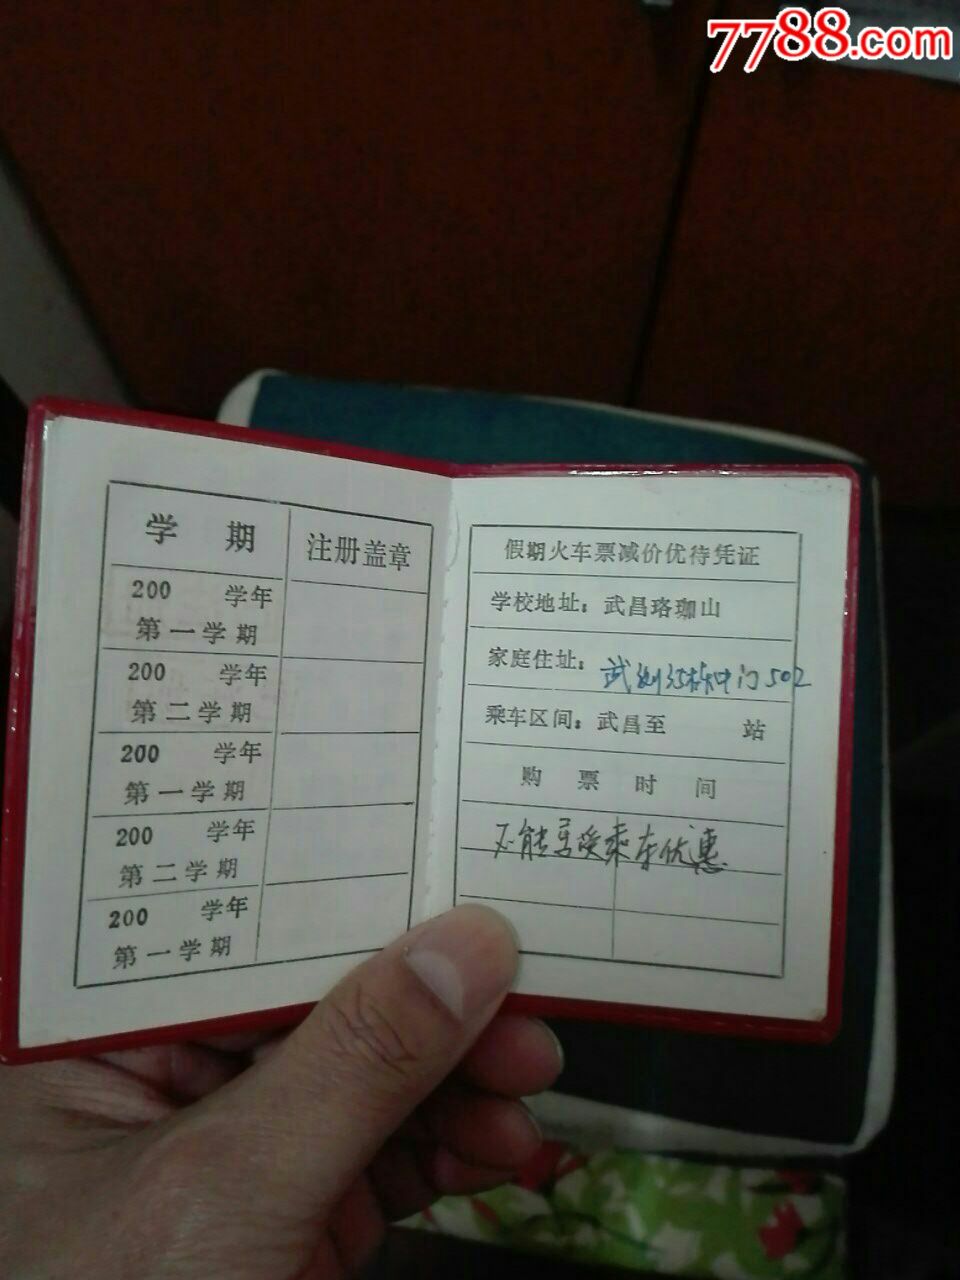 7788.com
学 期 注册盖章
200 学年
第一学期
200 学年
第二学期
200 学年
第一学期
200 学年
第二学期
200 学年
第一学期
假期火车票减价优待凭证
学校地址：武昌珞珈山
家庭住址：武测35栋四门502
乘车区间：武昌至 站
购票时间
不能享受乘车优惠